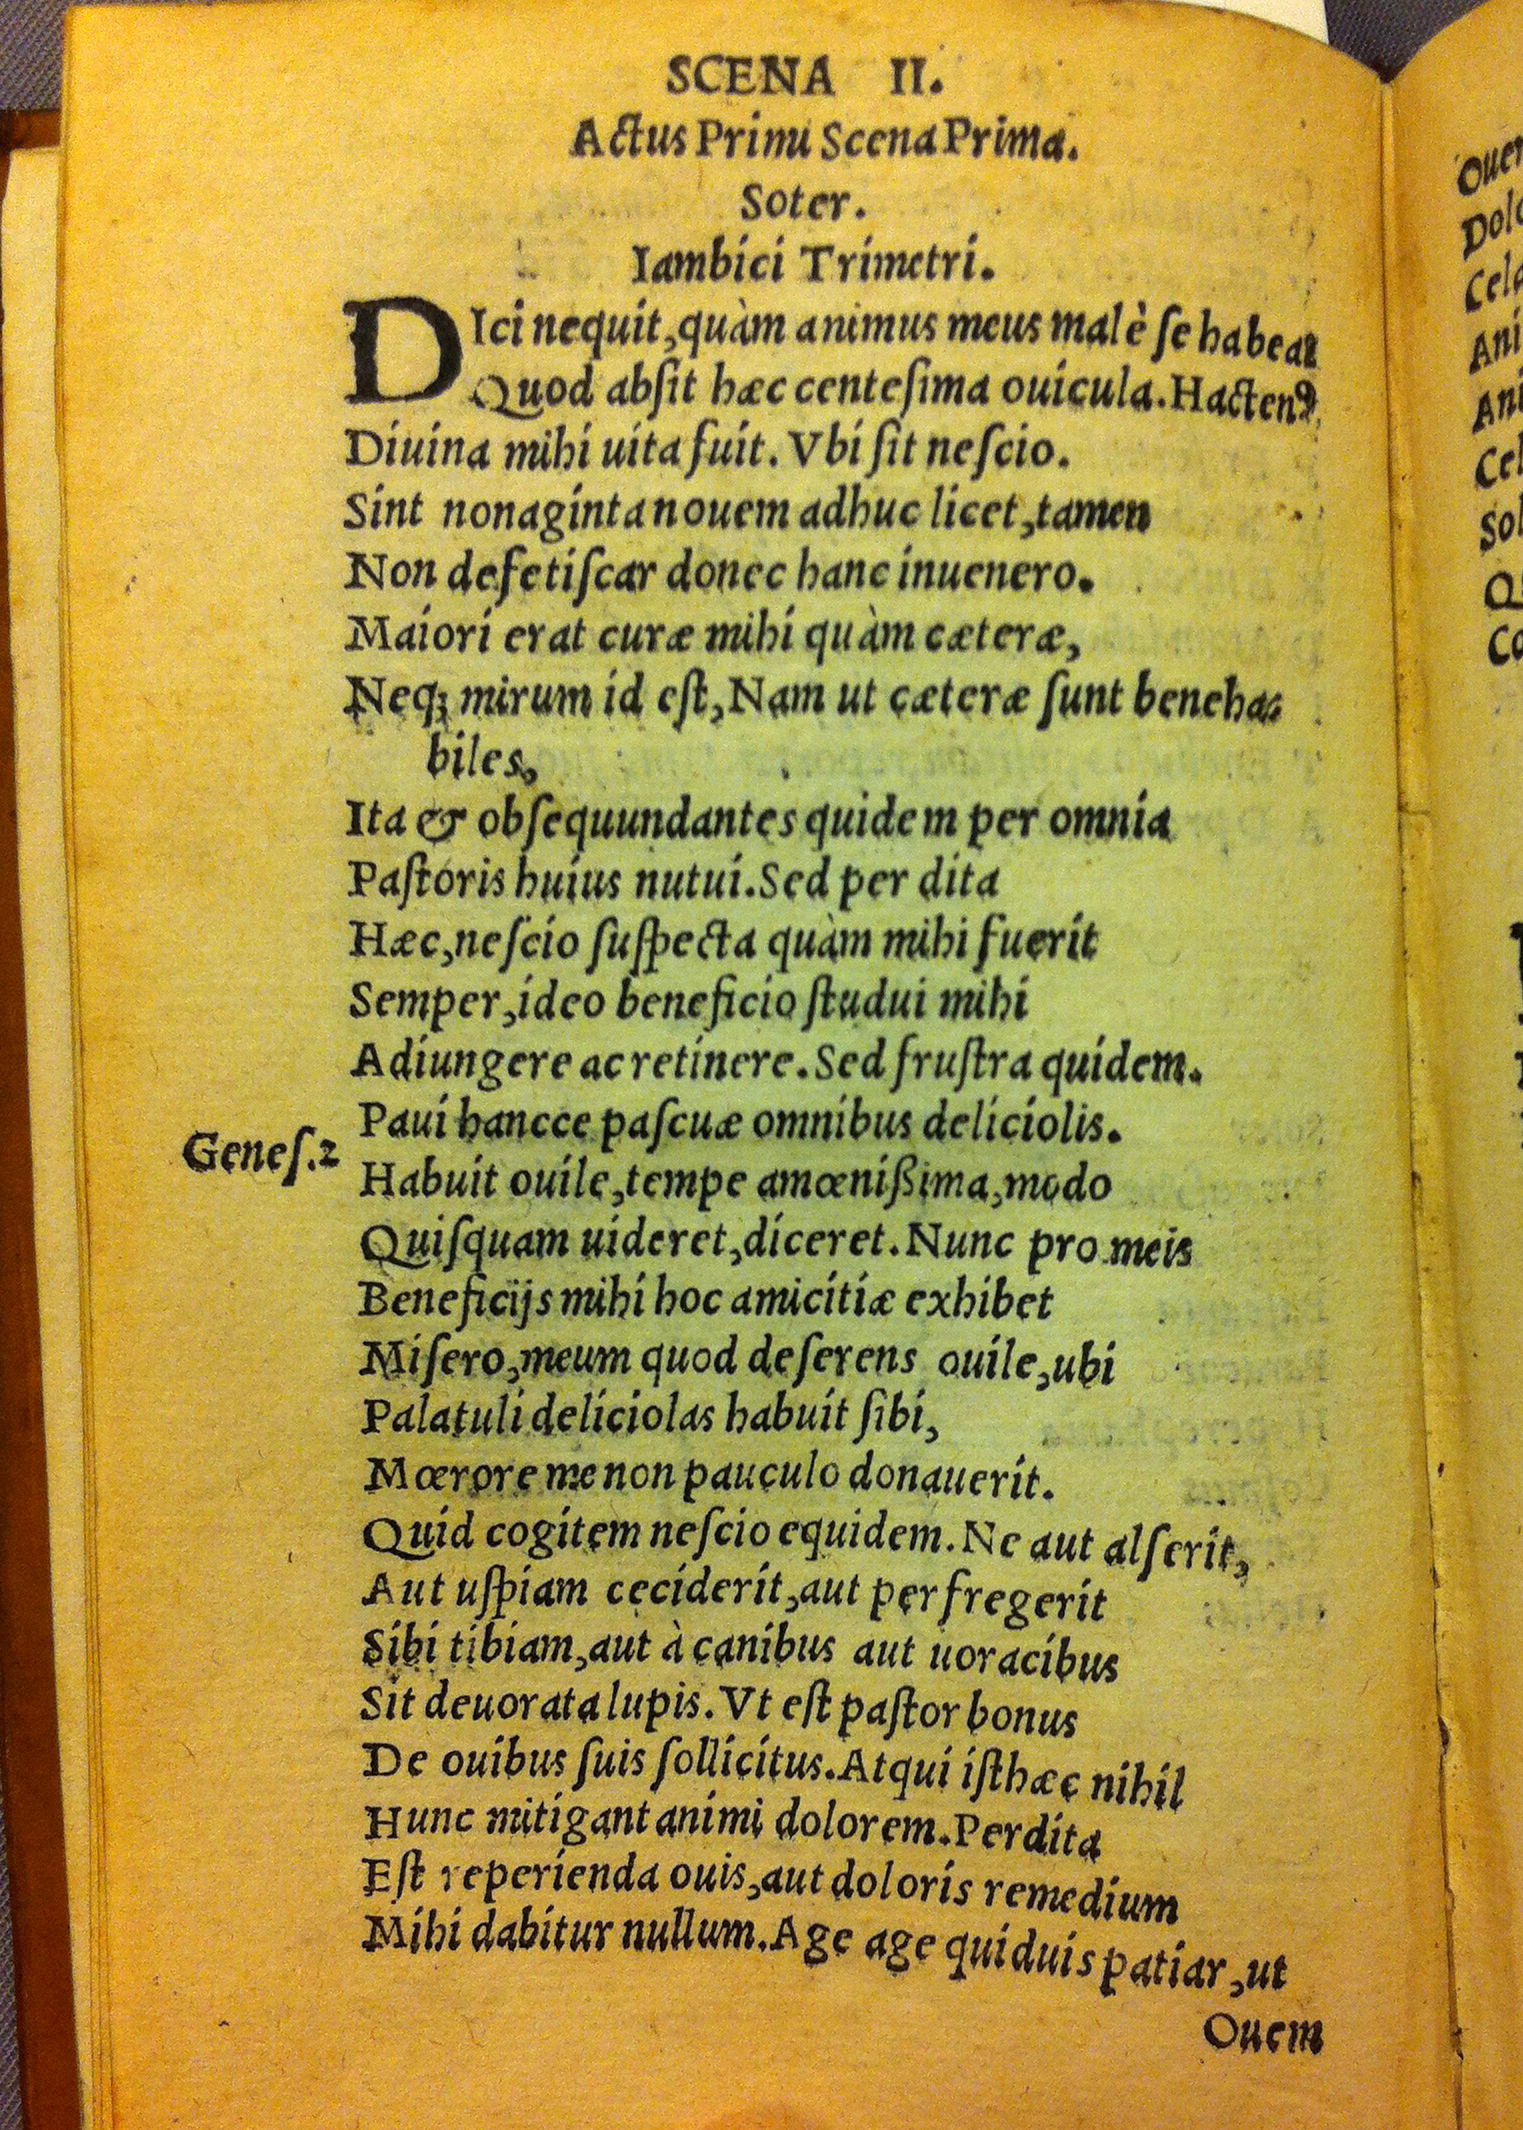 SCENA II.
Actus Primi Scena Prima.
Soter.
Iambici Trimetri.
DIci nequit, quàm animus meus malè ſe habeat
Quod abſit hæc centeſima ouicula. Hactenꝰ
Diuina mihi uita fuit. Vbi ſit neſcio.
Sint nonaginta nouem adhuc licet, tamen
Non defetiſcar donec hanc inuenero.
Maiori erat curæ mihi quàm cæteræ,
Neqꝫ mirum id eſt, Nam ut cæteræ ſunt beneha-
biles,
Ita & obſequundantes quidem per omnia
Paſtoris huius nutui. Sed perdita
Hæc, neſcio ſuſpecta quàm mihi fuerit
Semper, ideo beneficio ſtudui mihi
Adiungere ac retinere. Sed fruſtra quidem.
Paui hancce paſcuæ omnibus deliciolis.
Geneſ. 2
Habuit ouile, tempe amœnißima, modo
Quiſquam uideret, diceret. Nunc pro meis
Beneficijs mihi hoc amicitiæ exhibet
Miſero, meum quod deſerens ouile, ubi
Palatuli deliciolas habuit ſibi,
Mœrore me non pauculo donauerit.
Quid cogitem neſcio equidem. Ne aut alſerit,
Aut uſpiam ceciderit, aut perfregerit
Sibi tibiam, aut à canibus aut uoracibus
Sit deuorata lupis. Vt eſt paſtor bonus
De ouibus ſuis ſollicitus. Atqui iſthæc nihil
Hunc mitigant animi dolorem. Perdita
Eſt reperienda ouis, aut doloris remedium
Mihi dabitur nullum. Age age quiduis patiar, ut
Ouem
Dol
Cel
Ani
Ani
Cel
Sol
Q
Co